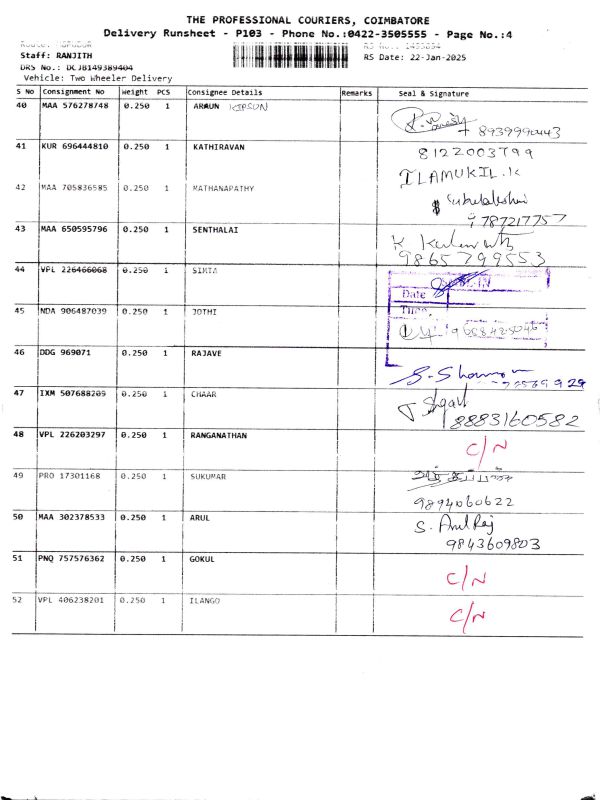 THE PROFESSIONAL COURIERS, COIMBATORE
Delivery Runsheet - P103 - Phone No.:0422-3505555 - Page No.:4
Staff: RANJITH RS Date: 22-Jan-2025
DRS No.: DCJB149389404
Vehicle: Two Wheeler Delivery
S No Consignment No Weight PCS Consignee Details Remarks Seal & Signature
40 MAA 576278748 0.250 1 ARAUN
8939990443
41 KUR 696444810 0.250 1 KATHIRAVAN 8122003799
ILAMUKIL.K
42 MAA 705836585 0.250 1 MATHANAPATHY
9787217757
43 MAA 650595796 0.250 1 SENTHALAI
9865799553
44 VPL 226466068 0.250 1 SIMTA
Date
45 NDA 906487039 0.250 1 JOTHI
46 DDG 969071 0.250 1 RAJAVE
47 IXM 507688209 0.250 1 CHAAR
8883160582
48 VPL 226203297 0.250 1 RANGANATHAN C/N
49 PRO 17301168 0.250 1 SUKUMAR
9894060622
50 MAA 302378533 0.250 1 ARUL S. Arul Raj
9843609803
51 PNQ 757576362 0.250 1 GOKUL C/N
52 VPL 406238201 0.250 1 ILANGO C/N